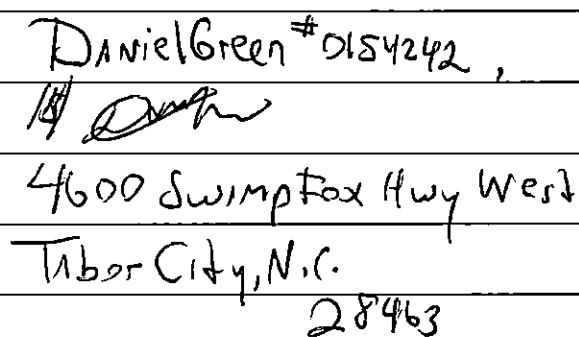 Daniel Green #0154242,
/s/
4600 Swamp Fox Hwy West
Tabor City, N.C.
28463